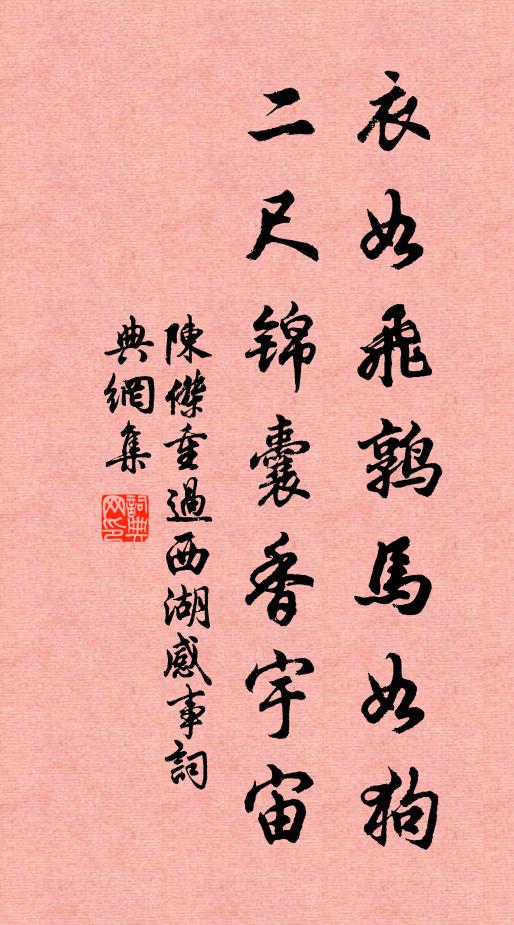 衣如飛鶉馬如狗
二尺锦囊香宇宙
陳傑重過西湖感事詞
典網集
詞典
网印